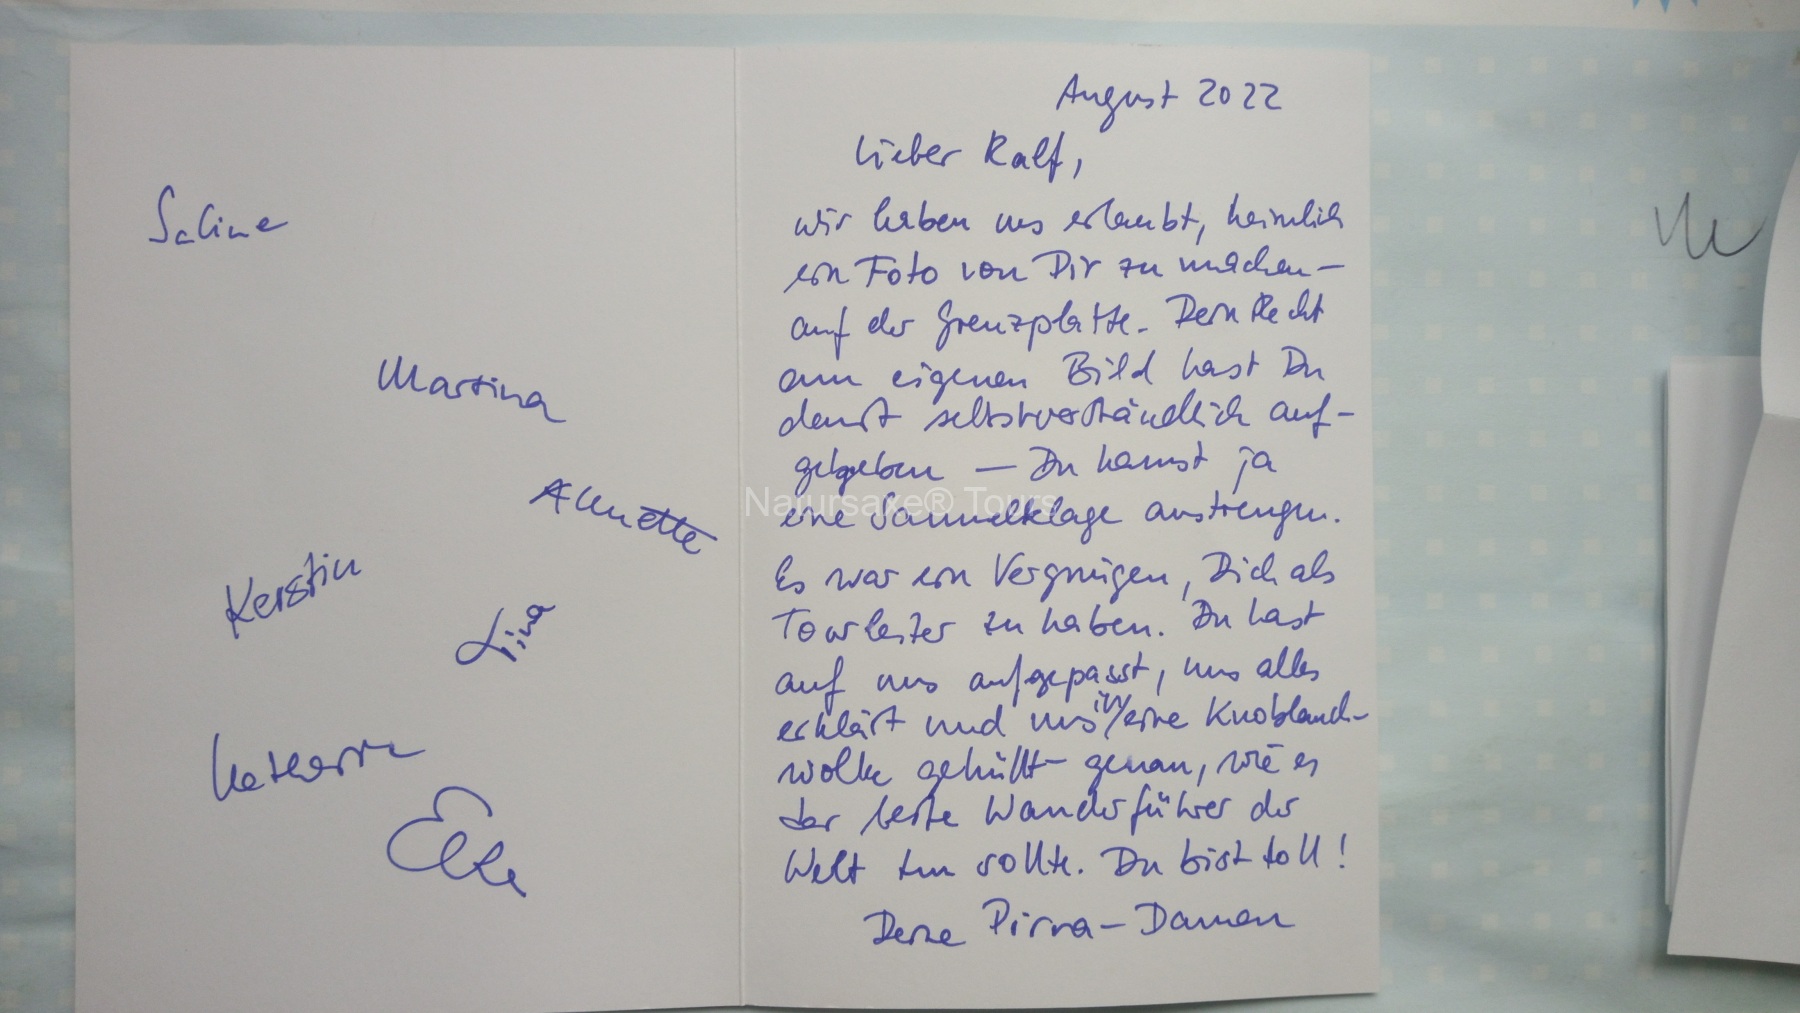 Sabine
Martina
Annette
Kerstin
Lina
Katharina
Elke
August 2022
Lieber Ralf,
wir haben uns erlaubt, heimlich
ein Foto von Dir zu machen –
auf der Grenzplatte. Dein Recht
am eigenen Bild hast Du
damit selbstverständlich auf-
gegeben – Du kannst ja
eine Sammelklage anstrengen.
Es war ein Vergnügen, Dich als
Tourleiter zu haben. Du hast
auf uns aufgepasst, uns alles
erklärt und uns in eine Knoblauch-
wolke gehüllt – genau, wie es
der beste Wanderführer der
Welt tun sollte. Du bist toll!
Deine Pirna-Damen
Natursaxe® Tours